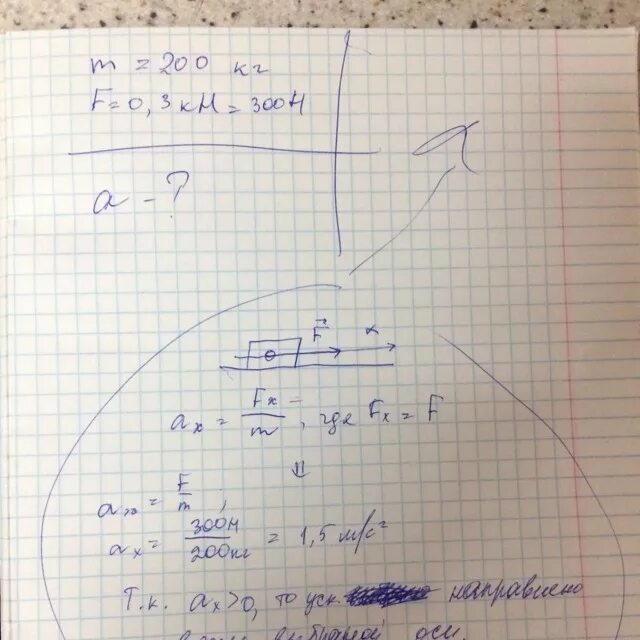 m = 200 кг
F = 0,3 кН = 300 Н
a - ?
a
F x
aₓ = Fₓ/m, где Fₓ = F
⇓
aₓ = F/m,
aₓ = 300Н/200кг = 1,5 м/с²
Т.к. aₓ>0, то уск. направлено
выбраной оси.